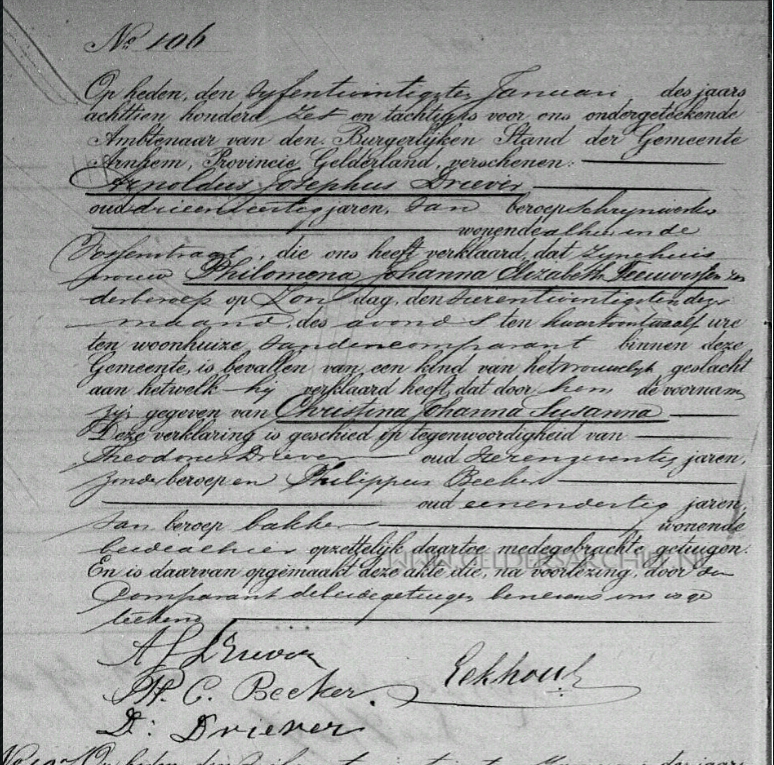 No 106
Op heden, den vyfentwintigsten Januari des jaars
achttien honderd zes en tachtig is voor ons ondergeteekende
Ambtenaar van den Burgerlijken Stand der Gemeente
Arnhem, Provincie Gelderland, verschenen:
Arnoldus Josephus Driever
oud drieenveertig jaren, van beroep schrynwerker
wonende alhier in de
, die ons heeft verklaard, dat zyne huis
vrouw Philomena Johanna Elizabeth Leeuwesteyn zon
der beroep op Zondag, den vierentwintigsten dezer
maand, des avonds ten kwart voor twaalf ure
ten woonhuize van den comparant binnen deze
Gemeente, is bevallen van een kind van het vrouwelyk geslacht
aan hetwelk hy verklaard heeft, dat door hem de voornamen
zyn gegeven van Christina Johanna Susanna
Deze verklaring is geschied in tegenwoordigheid van
Theodorus Driever oud zevenzeventig jaren,
zonder beroep en Philippus Becker
oud eenendertig jaren,
van beroep bakker wonende
beide alhier opzettelijk daartoe medegebrachte getuigen.
WWW.GELDERSARCHIEF.NL
En is daarvan opgemaakt deze akte die, na voorlezing, door den
Comparant de beide getuigen benevens ons is ge
teekend
A J Driever
Ph. C. Becker Eekhout
D: Driever
Op heden den